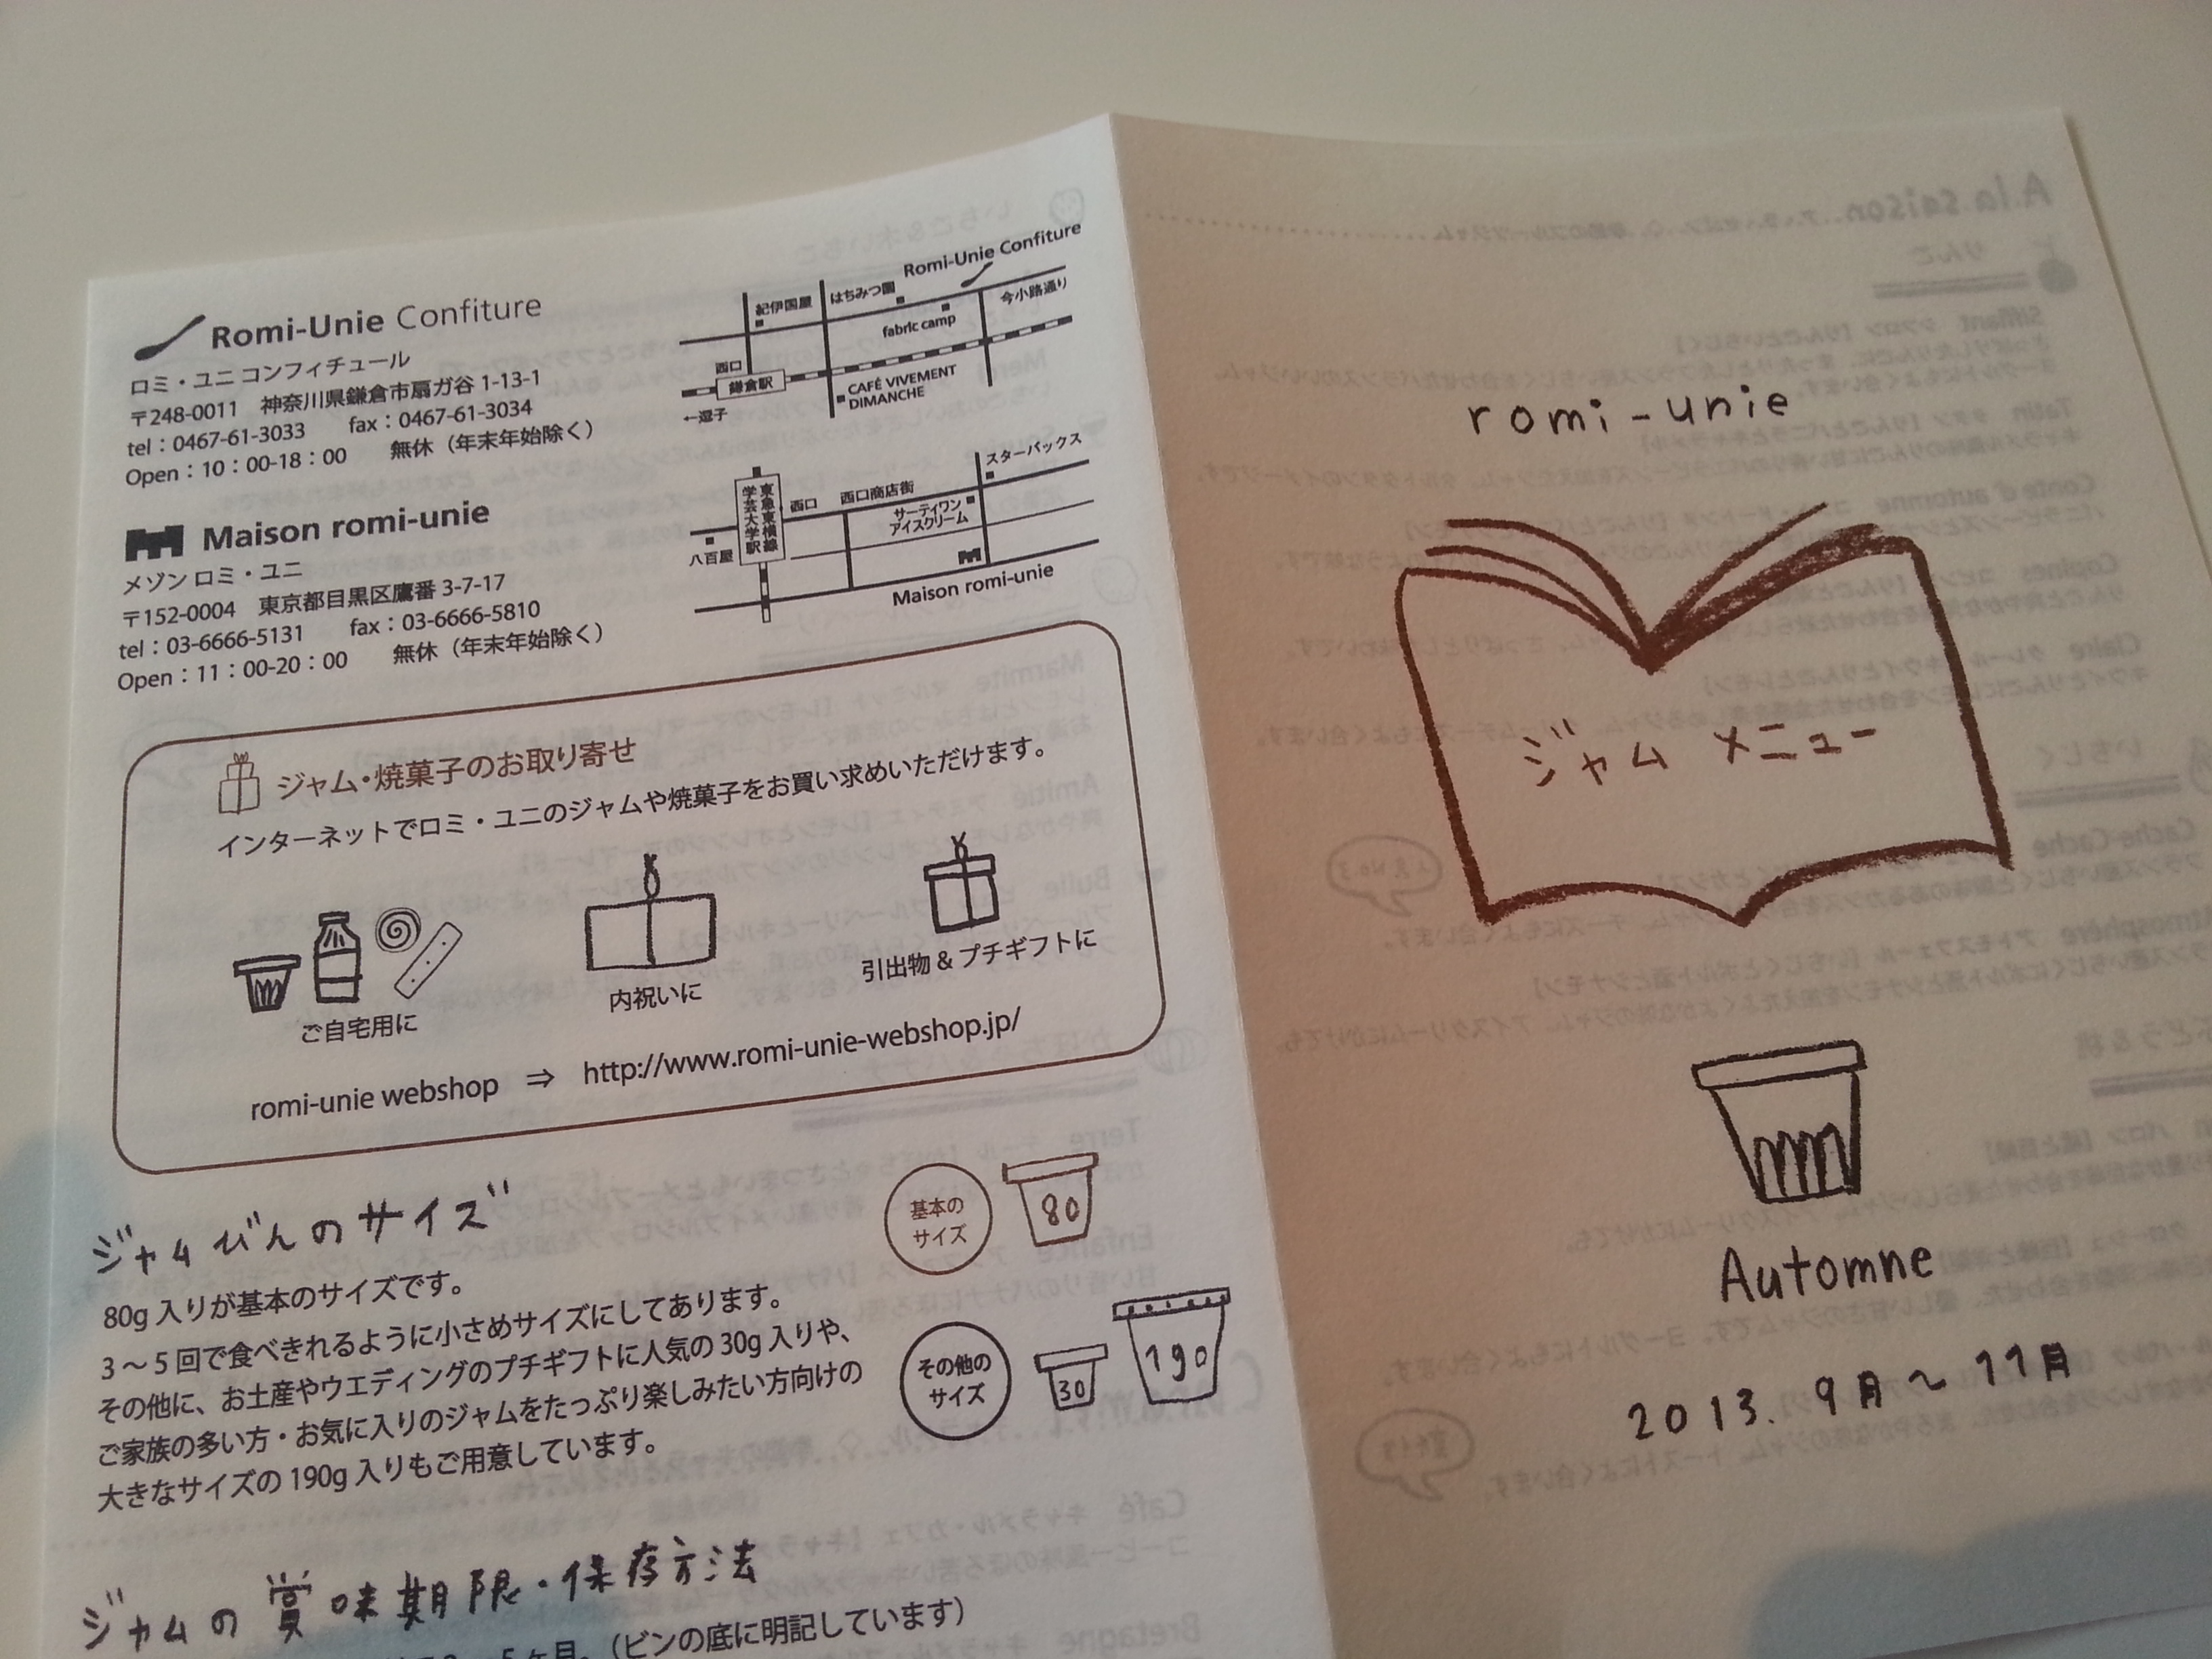 Romi-Unie Confiture
ロミ・ユニ コンフィチュール
〒248-0011 神奈川県鎌倉市扇ガ谷 1-13-1
tel：0467-61-3033 fax：0467-61-3034
Open：10：00-18：00 無休（年末年始除く）
Romi-Unie Confiture
紀伊国屋
はちみつ園
今小路通り
fabric camp
西口
鎌倉駅
CAFÉ VIVEMENT
DIMANCHE
←逗子
Maison romi-unie
メゾン ロミ・ユニ
〒152-0004 東京都目黒区鷹番 3-7-17
tel：03-6666-5131 fax：03-6666-5810
Open：11：00-20：00 無休（年末年始除く）
スターバックス
東急東横線
学芸大学駅
西口
西口商店街
サーティワン
アイスクリーム
八百屋
Maison romi-unie
ジャム・焼菓子のお取り寄せ
インターネットでロミ・ユニのジャムや焼菓子をお買い求めいただけます。
ご自宅用に
内祝いに
引出物 & プチギフトに
romi-unie webshop ⇒ http://www.romi-unie-webshop.jp/
ジャムびんのサイズ
80g 入りが基本のサイズです。
3～5 回で食べきれるように小さめサイズにしてあります。
その他に、お土産やウエディングのプチギフトに人気の 30g 入りや、
ご家族の多い方・お気に入りのジャムをたっぷり楽しみたい方向けの
大きなサイズの 190g 入りもご用意しています。
基本の
サイズ
80
その他の
サイズ
30
190
ジャムの賞味期限・保存方法
5ヶ月。（ビンの底に明記しています）
romi-unie
ジャム メニュー
Automne
2013. 9月～11月